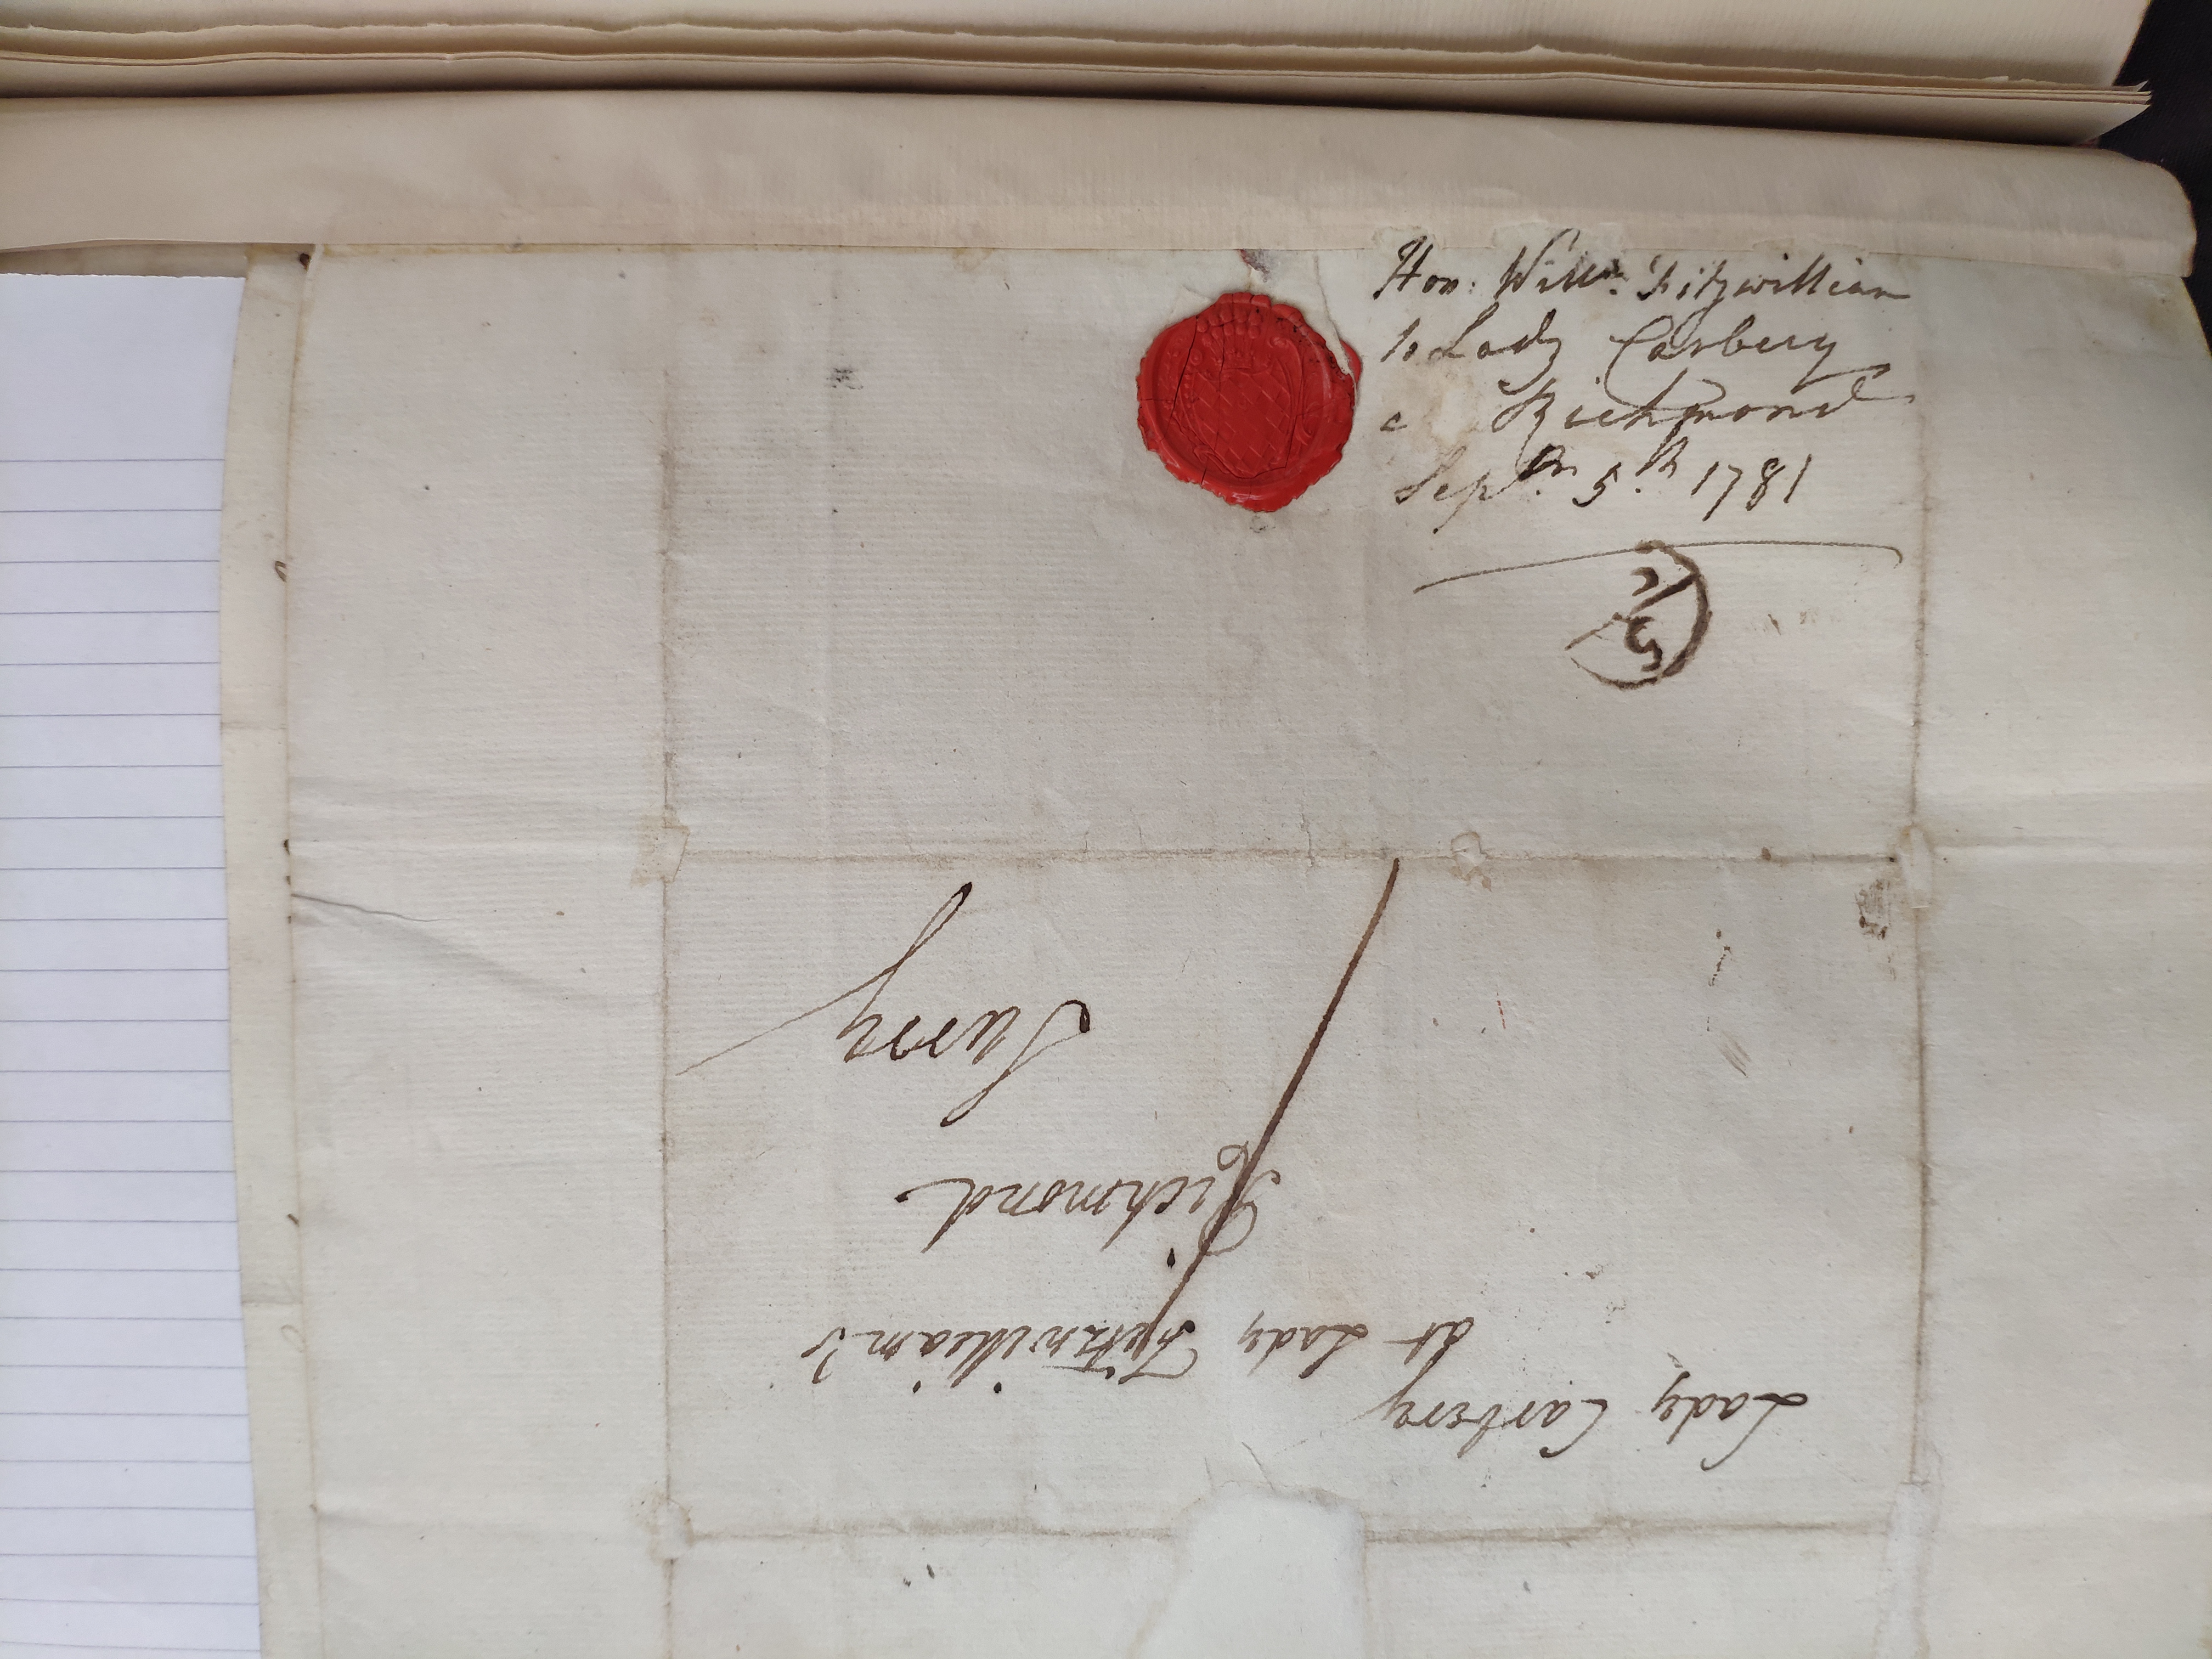 Hon: Willm. Fitzwilliam
to Lady Carbery
Richmond
Septbr. 5th 1781
Lady Carbery
at Lady Fitzwilliam's
Richmond
Surry